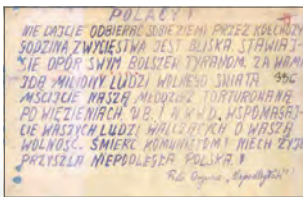 POLACY!
NIE DAJCIE ODBIERAĆ SOBIE ZIEMI PRZEZ KOŁCHOZY
GODZINA ZWYCIĘSTWA JEST BLISKA. STAWIAJ
SIĘ OPÓR SWYM BOLSZEW. TYRANOM. ZA WAMI
IDĄ MILIONY LUDZI WOLNEGO ŚWIATA
MŚCIJCIE NASZĄ MŁODZIEŻ TORTUROWANĄ
PO WIĘZIENIACH U.B. I N.K.W.D. WSPOMAGAJ-
CIE WASZYCH LUDZI WALCZĄCYCH O WASZĄ
WOLNOŚĆ. ŚMIERĆ KOMUNISTOM! NIECH ŻYJE
PRZYSZŁA NIEPODLEGŁA POLSKA!